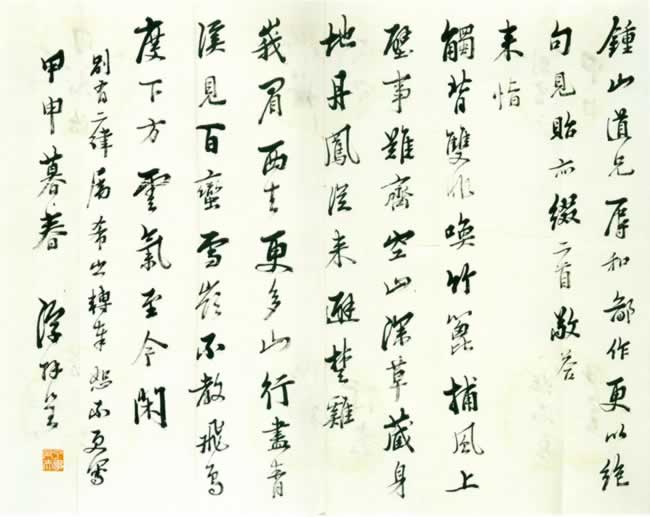 鍾山道兄辱和鄙作更以絕
句見貽亦綴二首敬答
來恉
觸背雙非喚竹篦捕風上
壁事難齊空山深草藏身
地丹鳳從來避楚雞
峩眉西去更多山行盡青
溪見百蠻雪嶺不教飛鳥
度下方雲氣至今閑
別有二律屬希之轉奉恕不更寫
甲申暮春 浮拜